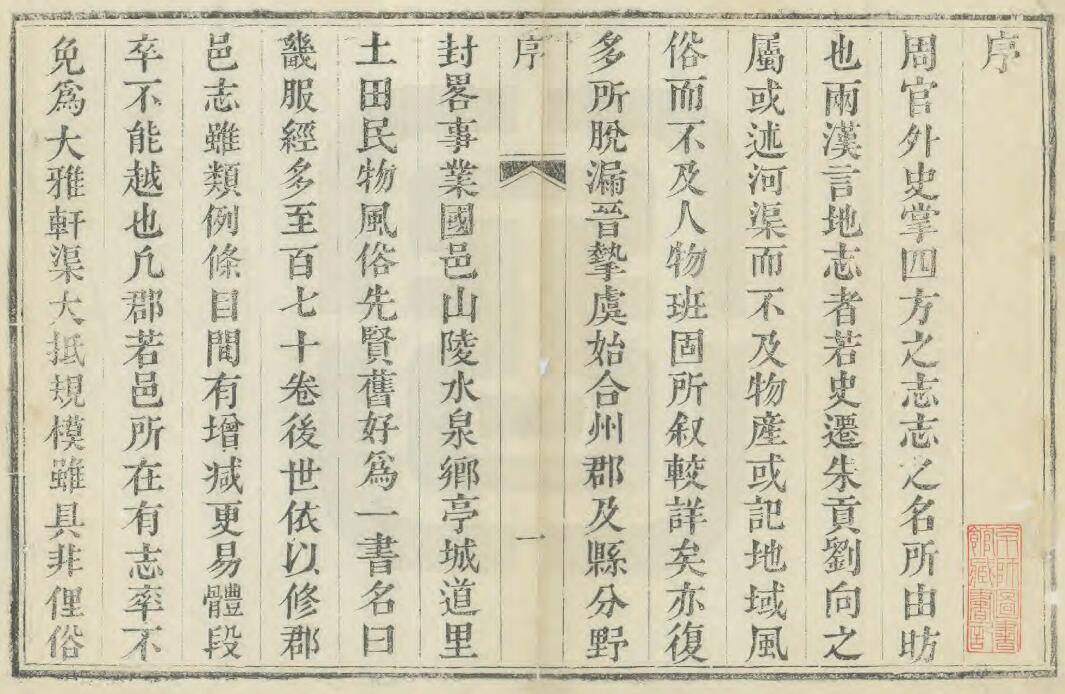 序
周官外史掌四方之志志之名所由昉
也兩漢言地志者若史遷朱貢劉向之
屬或述河渠而不及物產或記地域風
俗而不及人物班固所叙較詳矣亦復
多所脫漏晉摯虞始合州郡及縣分野
序
一
封畧事業國邑山陵水泉鄉亭城道里
土田民物風俗先賢舊好爲一書名曰
畿服經多至百七十卷後世依以修郡
邑志雖類例條目間有增减更易體段
卒不能越也凡郡若邑所在有志率不
免爲大雅軒渠大抵規模雖具非俚俗